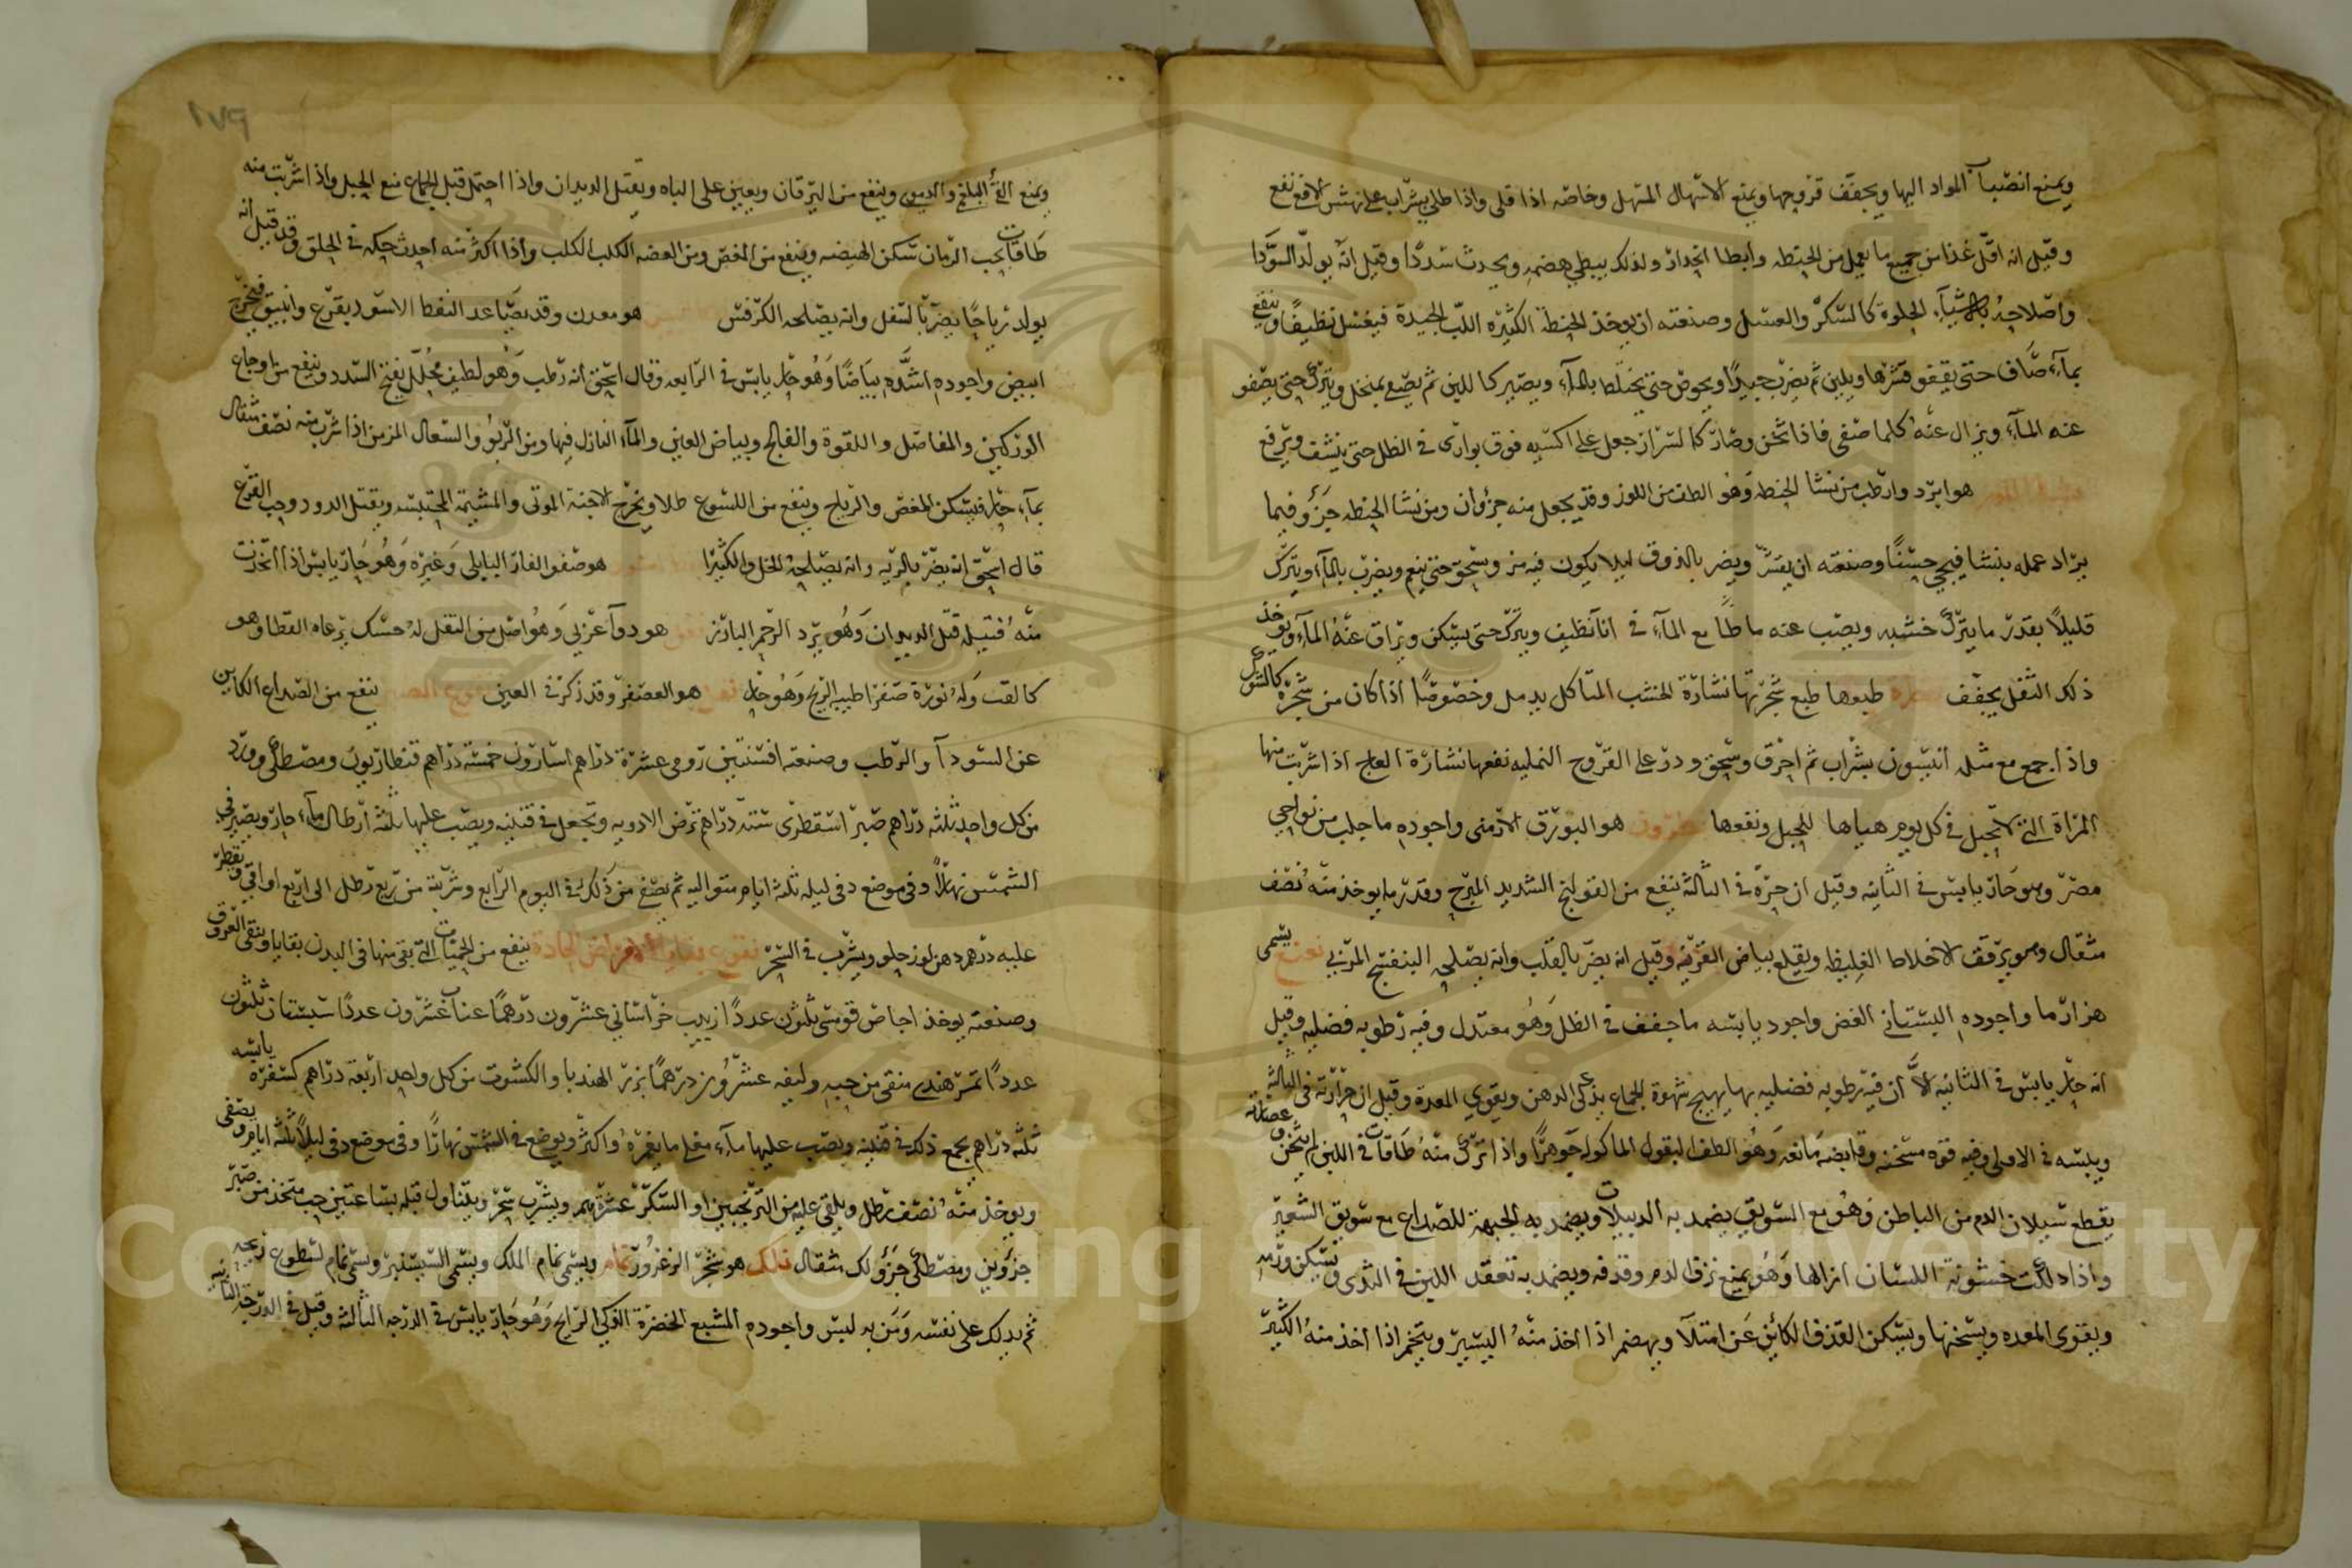 ويمنع انصباب المواد اليها ويجفف قروحها ويمنع الاسهال المسهل وخاصه اذا قلى واذا طلى بشراب على نهش الافعى نفع
وقيل انه اقل غذا من جميع ما يعمل من الحنطه وابطا انحدار ولذلك يبطي هضمه ويحدث سددا وقيل انه يولد السودا
واصلاحه بالاشيآء الحلوة كالسكر والعسل وصنعته ان يوخذ الحنطة الكثيره اللب الجيدة فيغسل نظيفا وينقع
بمآء صاف حتى يقفو قشرها ويلين ثم يضرب جيدا ويحوض حتى يختلط بالمآء ويصير كاللبن ثم يصفى بمنخل ويترك حتى يصفو
عنه المآء ويزال عنه كلما صفى فاذا ثخن وصار كالشراز جعل على اكسيه فوق بوارى فى الظل حتى ينشف ويرفع
هو ابرد وارطب من نشا الحنطه وهو الطف من اللوز وقد يجعل منه جزؤان ومن نشا الحنطه جزؤ فيما
يراد عمله بنشا فيجي حسنا وصنعته ان يقشر ويضر بالذوق ليلا يكون فيه مر ويسحق حتى ينعم ويضرب بالمآء ويترك
قليلا بقدر ما يترك خشبه ويصب عنه ما طفا مع المآء فى انا نظيف ويترك حتى يسكن ويراق عنه المآء ويوخذ
ذلك الثفل يجفف نشارة طبعها طبع شجرتها نشارة الخشب المتاكل يدمل وخصوصا اذا كان من شجرة كالشوك
واذا جمع مع مثله انيسون بشراب ثم احرق وسحق وذر على القروح النمليه نفعها نشارة العاج اذا شربت منها
المراة التى لا تحبل فى كل يوم هياها للحبل ونفعها نطرون هو البورق الارمنى واجوده ما جلب من نواحي
مصر وهو حار يابس فى الثانيه وقيل ان حره فى الثالثة ينفع من القولنج الشديد المبرح وقدر ما يوخذ منه نصف
مثقال وهو يرقق الاخلاط الغليظه ويقلع بياض القرنيه وقيل انه يضر بالقلب وانه يصلحه البنفسج المربى نعنع يسمى
هزارما واجوده البستاني الغض واجود يابسه ما جفف فى الظل وهو معتدل وفيه رطوبه فضليه وقيل
انه حار يابس فى الثانيه الا ان فيه رطوبه فضليه بها يهيج شهوة الجماع يذكى الذهن ويقوي المعدة وقيل ان حرارته فى الثالثة
ويبسه فى الاولى وفيه قوة مسخنه وقابضه مانعه وهو الطف البقول الماكوله جوهرا واذا ترك منه طاقات فى اللبن لم يتجبن وعصارته
يقطع سيلان الدم من الباطن وهو مع السويق يضمد به الدبيلات ويضمد به الجبهة للصداع مع سويق الشعير
واذا دلكت خشونة اللسان ازالها وهو يمنع نزف الدم وقذفه ويضمد به تعقد اللبن فى الثدى ويسكن ورمه
ويقوى المعده ويسخنها ويسكن القذف الكائن عن امتلآ ويهضم اذا اخذ منه اليسير ويتخم اذا اخذ منه الكثير
١٧٩
ويمنع القئ البلغمي والدموي وينفع من اليرقان ويعين على الباه ويقتل الديدان واذا احتمل قبل الجماع منع الحبل واذا شربت منه
طاقات بحب الرمان سكن الهيضه وينفع من المغص ومن العضه الكلب الكلب واذا اكثر منه احدث حكه فى الحلق وقد قيل انه
يولد رياحا يضر بالسفل وانه يصلحه الكرفس هو معدن وقد يصاعد النفط الاسود بقرع وانبيق فيخرج
ابيض واجوده اشده بياضا وهو حار يابس فى الرابعه وقال اسحق انه رطب وهو لطيف محلل يفتح السدد وينفع من اوجاع
الوركين والمفاصل واللقوة والفالج وبياض العين والمآء النازل فيها ومن الربو والسعال المزمن اذا شرب منه نصف مثقال
بمآء حار فيسكن المغص والرياح وينفع من اللسوع طلا ويخرج الاجنة الموتى والمشيمة المحتبسه ويقتل الدود وحب القرع
قال اسحق انه يضر بالريه وانه يصلحه الخل والكثيرا هو صفو الفار البابلى وغيره وهو حار يابس اذا اتخذت
منه فتيله قتل الديدان وهو يبرد الرحم البارز هو دوآ عربي وهو اصل من النقل له حسك يرعاه القطا وهو
كالقت وله نورة صفرا طيبه الريح وهو حار نقع هو العصفر وقد ذكر فى العين ينفع من الصداع الكاين
عن السودآ والرطب وصنعته افسنتين رومى عشرة دراهم اسارون خمسة دراهم قنطاريون ومصطكى وورد
من كل واحد ثلثة دراهم صبر اسقطرى ستة دراهم ترض الادويه وتجعل فى قنينه ويصب عليها ثلثة ارطال مآء حار ويصير فى
الشمس نهارا وفى موضع دفى ليله ثلثة ايام متواليه ثم يصفى من ذلك فى اليوم الرابع وشربة من ربع رطل الى اربع اواقى ويقطر
عليه درهم دهن لوز حلو ويشرب فى السحر نقوع بقايا الامراض الحادة ينفع من الحميات التى بقى منها فى البدن بقايا وينقى العروق
وصنعته يوخذ اجاص قومسى ثلثون عددا زبيب خراسانى عشرون درهما عناب عشرون عددا سبستان ثلثون
عددا تمر هندى منقى من حبه وليفه عشرون درهما بزر الهندبا والكشوت من كل واحد اربعة دراهم كسفرة يابسه
ثلثه دراهم يجمع ذلك فى قنينه ويصب عليها مآء مغلى ما يغمره واكثر ويوضع فى الشمس نهارا وفى موضع دفى ليلا ثلثة ايام ويصفى
ويوخذ منه نصف رطل ويلقى عليه من الترنجبين او السكر عشرة دراهم ويشرب سحر ويتناول قبله بساعتين حب متخذ من صبر
جزؤين ومصطكى جزؤ لك مثقال نلك هو شجر الزعرور نمام ويسمى نمام الملك ويسمى السيسنبر وسمى نمام لسطوع ريحه
ثم يدلك على نفسه ومن به لبس واجوده المشبع الخضرة الذكى الرايح وهو حار يابس فى الدرجه الثالثه وقيل فى الدرجه الثانيه
Copyright © King Saud University